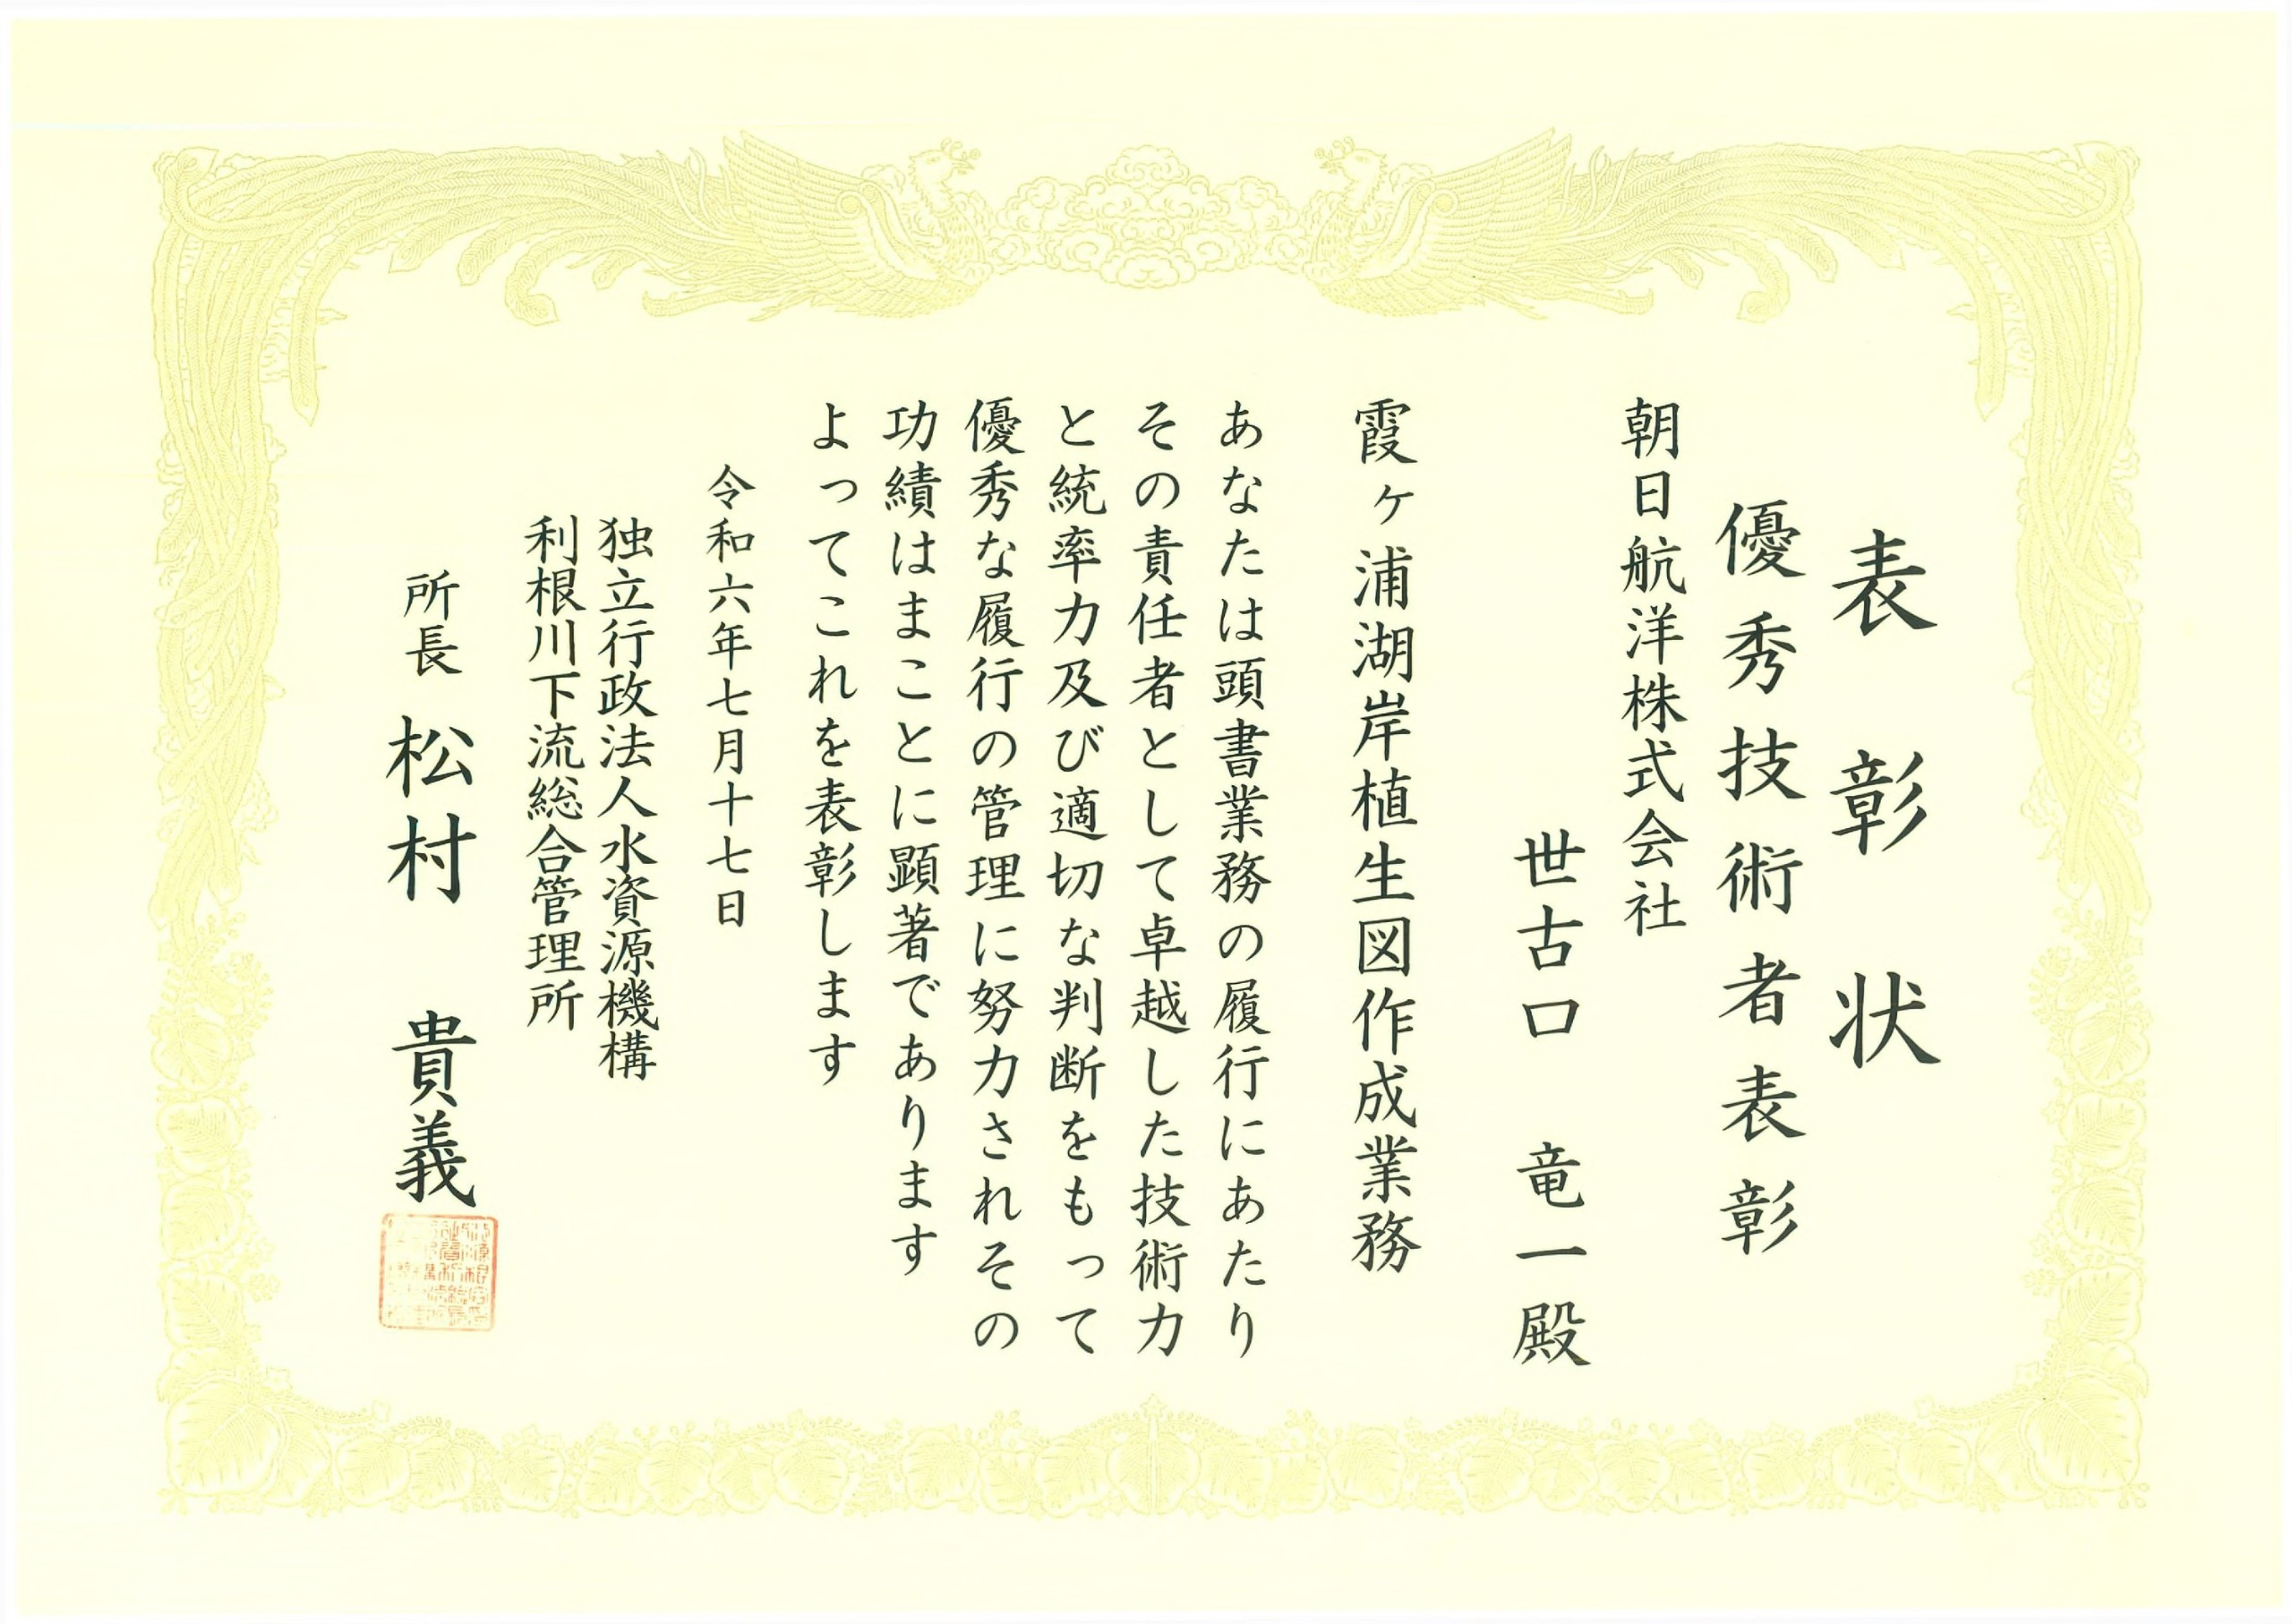 表彰状
優秀技術者表彰
朝日航洋株式会社
世古口 竜一殿
霞ヶ浦湖岸植生図作成業務
あなたは頭書業務の履行にあたり
その責任者として卓越した技術力
と統率力及び適切な判断をもって
優秀な履行の管理に努力されその
功績はまことに顕著であります
よってこれを表彰します
令和六年七月十七日
独立行政法人水資源機構
利根川下流総合管理所
所長 松村 貴義